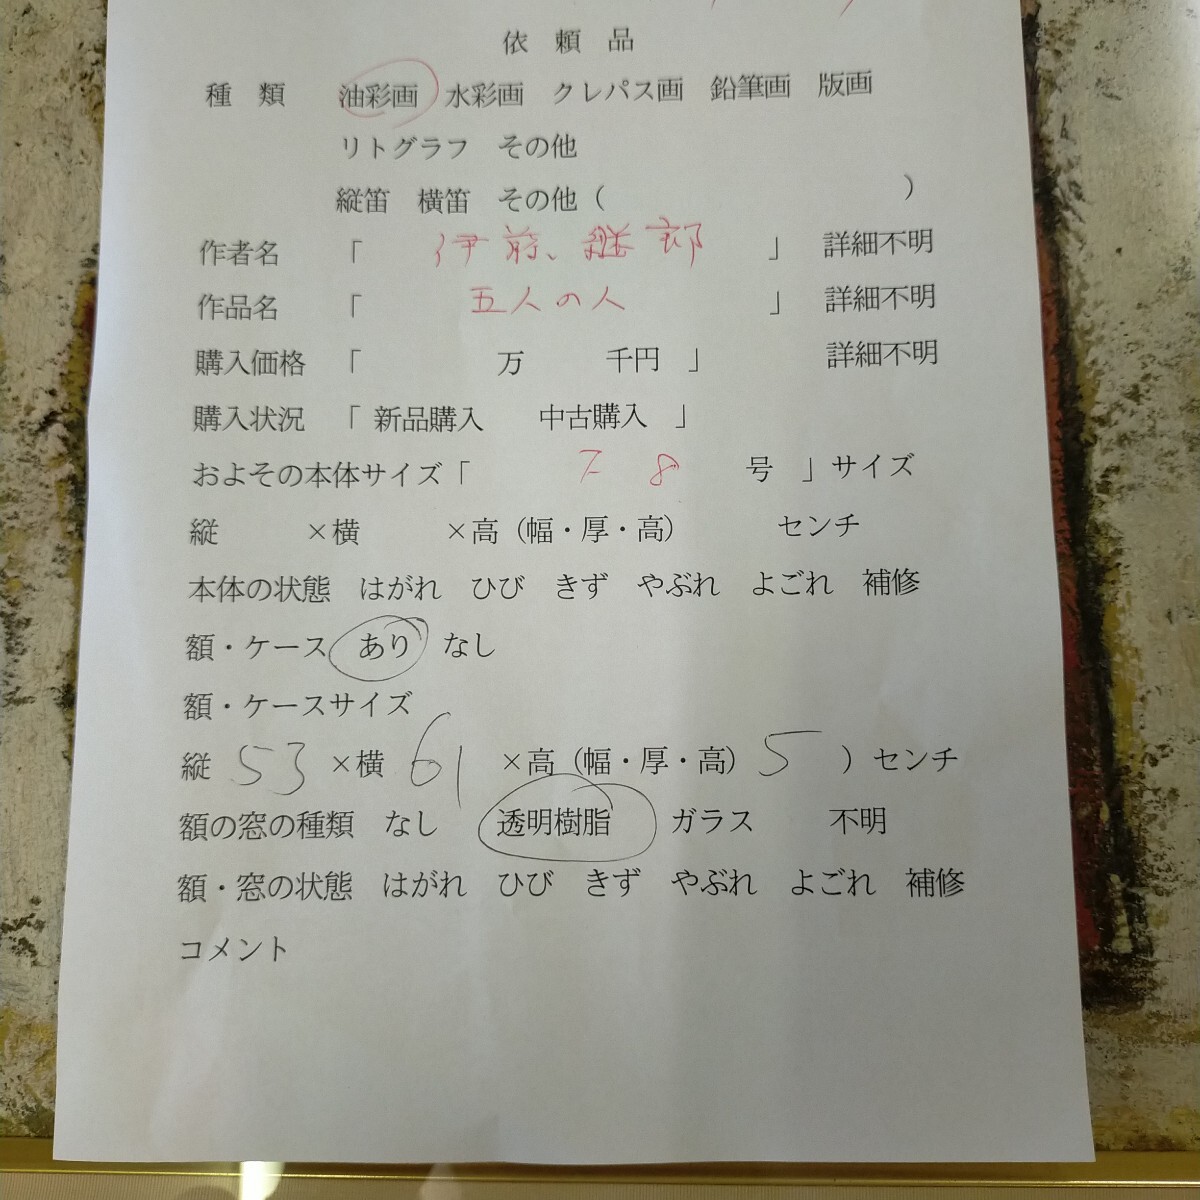 依頼品
種類 油彩画 水彩画 クレパス画 鉛筆画 版画
リトグラフ その他
縦笛 横笛 その他（ ）
作者名 「 伊藤、継郎 」 詳細不明
作品名 「 五人の人 」 詳細不明
購入価格 「 万 千円 」 詳細不明
購入状況 「 新品購入 中古購入 」
およその本体サイズ「 F 8 号 」サイズ
縦 ×横 ×高（幅・厚・高） センチ
本体の状態 はがれ ひび きず やぶれ よごれ 補修
額・ケース あり なし
額・ケースサイズ
縦 53 ×横 61 ×高（幅・厚・高） 5 ）センチ
額の窓の種類 なし 透明樹脂 ガラス 不明
額・窓の状態 はがれ ひび きず やぶれ よごれ 補修
コメント